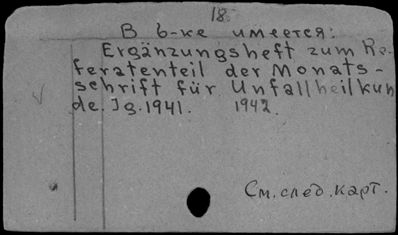 18.
В б-ке имеется:
Ergänzungsheft zum Re-
feratenteil der Monats-
schrift für Unfallheilkun
de. Jg. 1941. 1942.
См. след. карт.